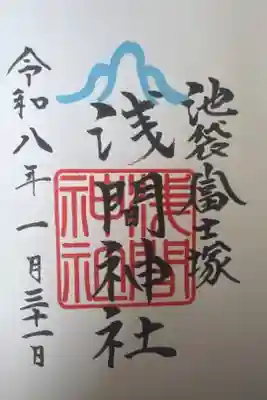 池袋富士塚
浅間神社
令和八年一月三十一日
浅間神社